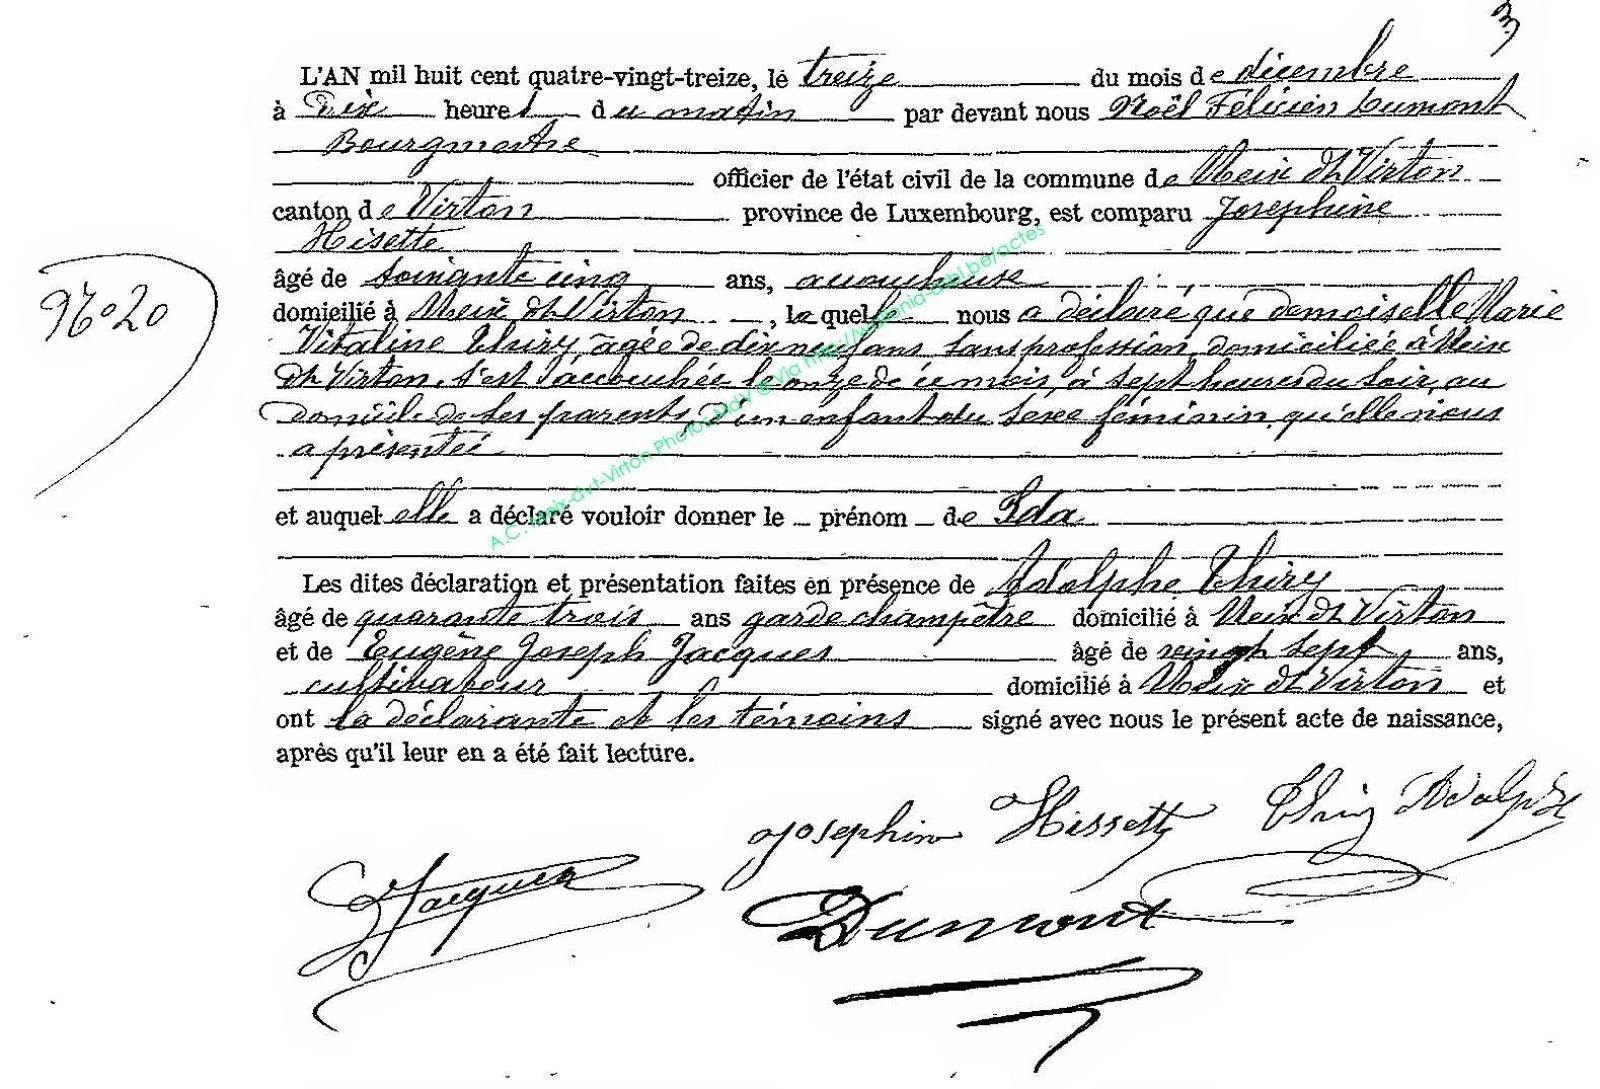 3
L'AN mil huit cent quatre-vingt-treize, le treize du mois de décembre
à Dix heures du matin par devant nous Noël Félicien Dumont
Bourgmestre
officier de l'état civil de la commune de Meix dt Virton
canton de Virton province de Luxembourg, est comparu Josephine
Hisette
âgé de soixante cinq ans, accoucheuse
domicilié à Meix dt Virton, laquelle nous a déclaré que demoiselle Marie
Vitaline Thiry, âgée de dix neuf ans sans profession, domiciliée à Meix
dt Virton, s'est accouchée le onze de ce mois, à sept heures du soir, au
domicile de ses parents, d'un enfant du sexe féminin, qu'elle nous
a présenté
et auquel elle a déclaré vouloir donner le prénom de Ida
Les dites déclaration et présentation faites en présence de Adolphe Thiry
âgé de quarante trois ans garde champêtre domicilié à Meix dt Virton
96020
et de Eugène Joseph Jacques âgé de vingt sept ans,
cultivateur domicilié à Meix dt Virton et
ont la déclarante et les témoins signé avec nous le présent acte de naissance,
après qu'il leur en a été fait lecture.
Josephine Hissette Thiry Adolphe
Jacques
Dumont